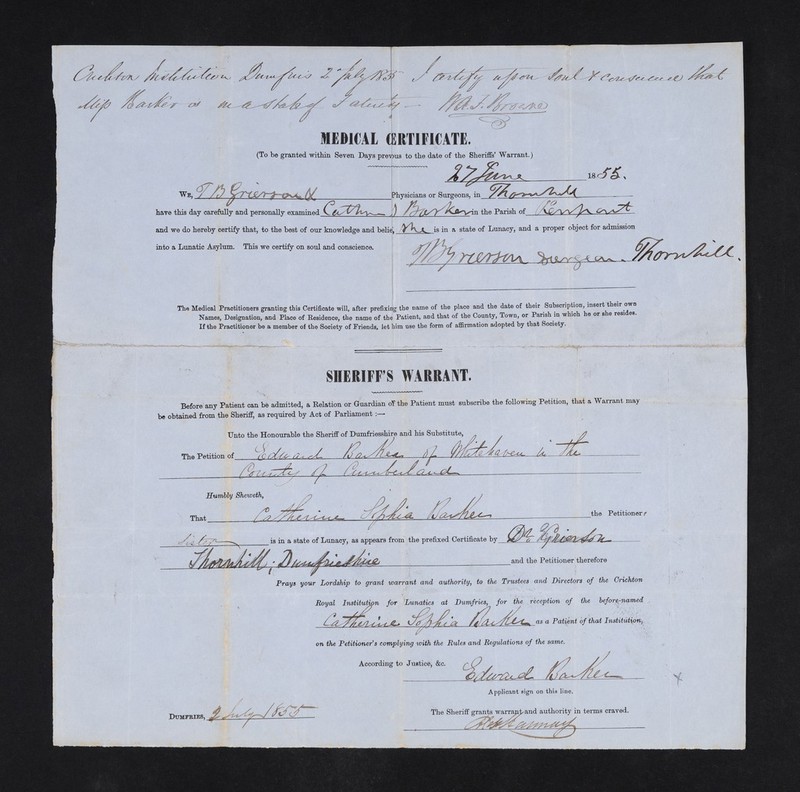 Crichton Institution Dumfries 2nd July 1855 I certify upon soul & conscience that
Miss Barker is in a state of Fatuity — W.A.F. Browne
MEDICAL CERTIFICATE.
(To be granted within Seven Days previous to the date of the Sheriffs' Warrant.)
27 June 1855.
We, T B Grierson Physicians or Surgeons, in Thornhill
have this day carefully and personally examined Barker in the Parish of
and we do hereby certify that, to the best of our knowledge and belief, she is in a state of Lunacy, and a proper object for admission
into a Lunatic Asylum. This we certify on soul and conscience.
T B Grierson surgeon. Thornhill.
The Medical Practitioners granting this Certificate will, after prefixing the name of the place and the date of their Subscription, insert their own
Names, Designation, and Place of Residence, the name of the Patient, and that of the County, Town, or Parish in which he or she resides.
If the Practitioner be a member of the Society of Friends, let him use the form of affirmation adopted by that Society.
SHERIFF'S WARRANT.
Before any Patient can be admitted, a Relation or Guardian of the Patient must subscribe the following Petition, that a Warrant may
be obtained from the Sheriff, as required by Act of Parliament :—
Unto the Honourable the Sheriff of Dumfriesshire and his Substitute,
The Petition of Edward Barker of Whitehaven in the
County of Cumberland
Humbly Sheweth,
That Catherine Sophia Barker the Petitioner's
Sister is in a state of Lunacy, as appears from the prefixed Certificate by Dr Grierson
Thornhill; Dumfriesshire and the Petitioner therefore
Prays your Lordship to grant warrant and authority, to the Trustees and Directors of the Crichton
Royal Institution for Lunatics at Dumfries, for the reception of the before-named
Catherine Sophia Barker as a Patient of that Institution,
on the Petitioner's complying with the Rules and Regulations of the same.
According to Justice, &c.
Edward Barker
Applicant sign on this line.
Dumfries, 2 July 1855 The Sheriff grants warrant and authority in terms craved.